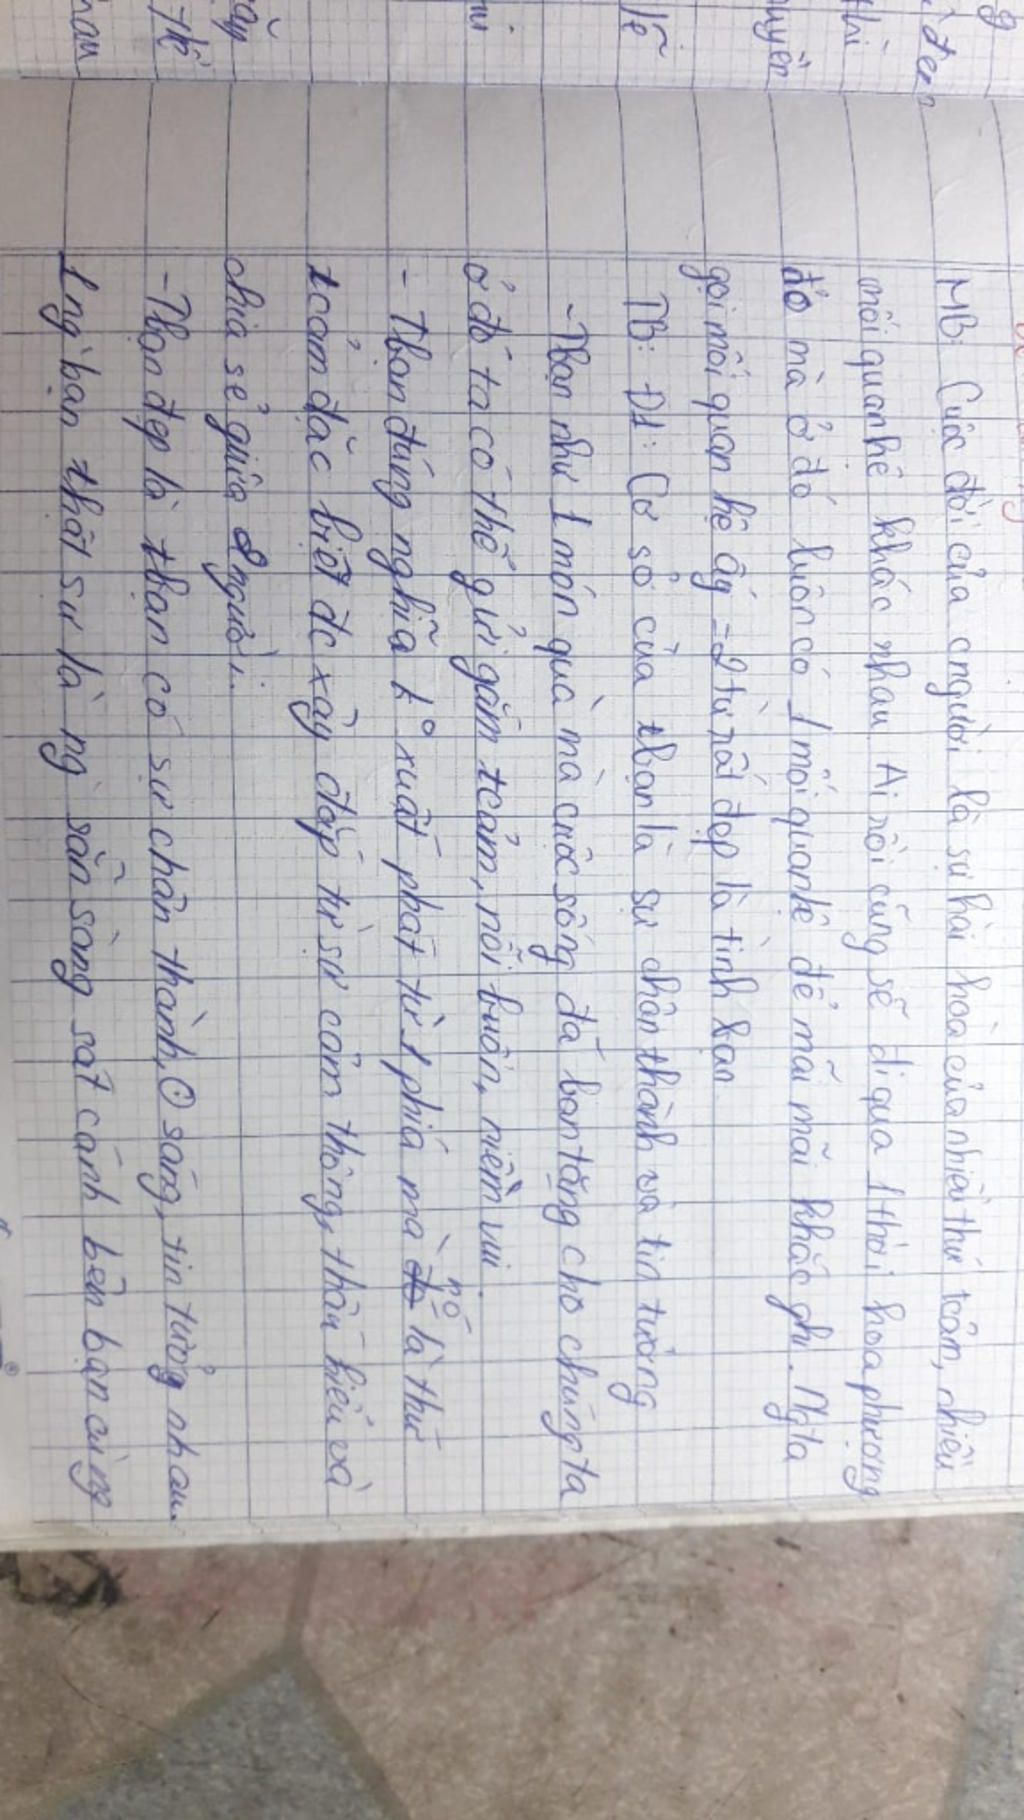 MB: Cuộc đời của cngười là sự hài hòa của nhiều thứ tcảm, nhiều
mối quan hệ khác nhau. Ai rồi cũng sẽ đi qua 1 thời hoa phượng
đỏ mà ở đó luôn có 1 mối quanhệ để mãi mãi khắc ghi. Ngta
gọi mối quan hệ ấy = 2 từ rất đẹp là tình bạn.
TB: Đ1: Cơ sở của tbạn là sự chân thành và tin tưởng
- Tbạn như 1 món quà mà cuộc sống đã ban tặng cho chúng ta
ở đó ta có thể gửi gắm tcảm, nỗi buồn, niềm vui.
- Tbạn đúng nghĩa k° xuất phát từ 1 phía mà nó là thứ
tcảm đặc biệt đc xây đắp từ sự cảm thông, thấu hiểu và
chia sẻ giữa 2 người.
- Tbạn đẹp là tbạn có sự chân thành, sáng, tin tưởng nhau.
1 ng` bạn thật sự là ng` sẵn sàng sát cánh bên bạn cùng
đem
thì
huyền
lẽ
thế
nhau